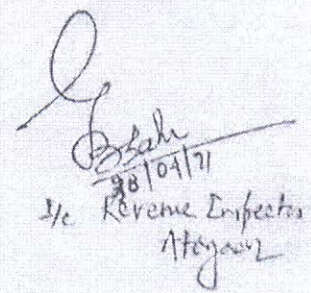 28/04/21
I/c Revenue Inspector
Ategaon